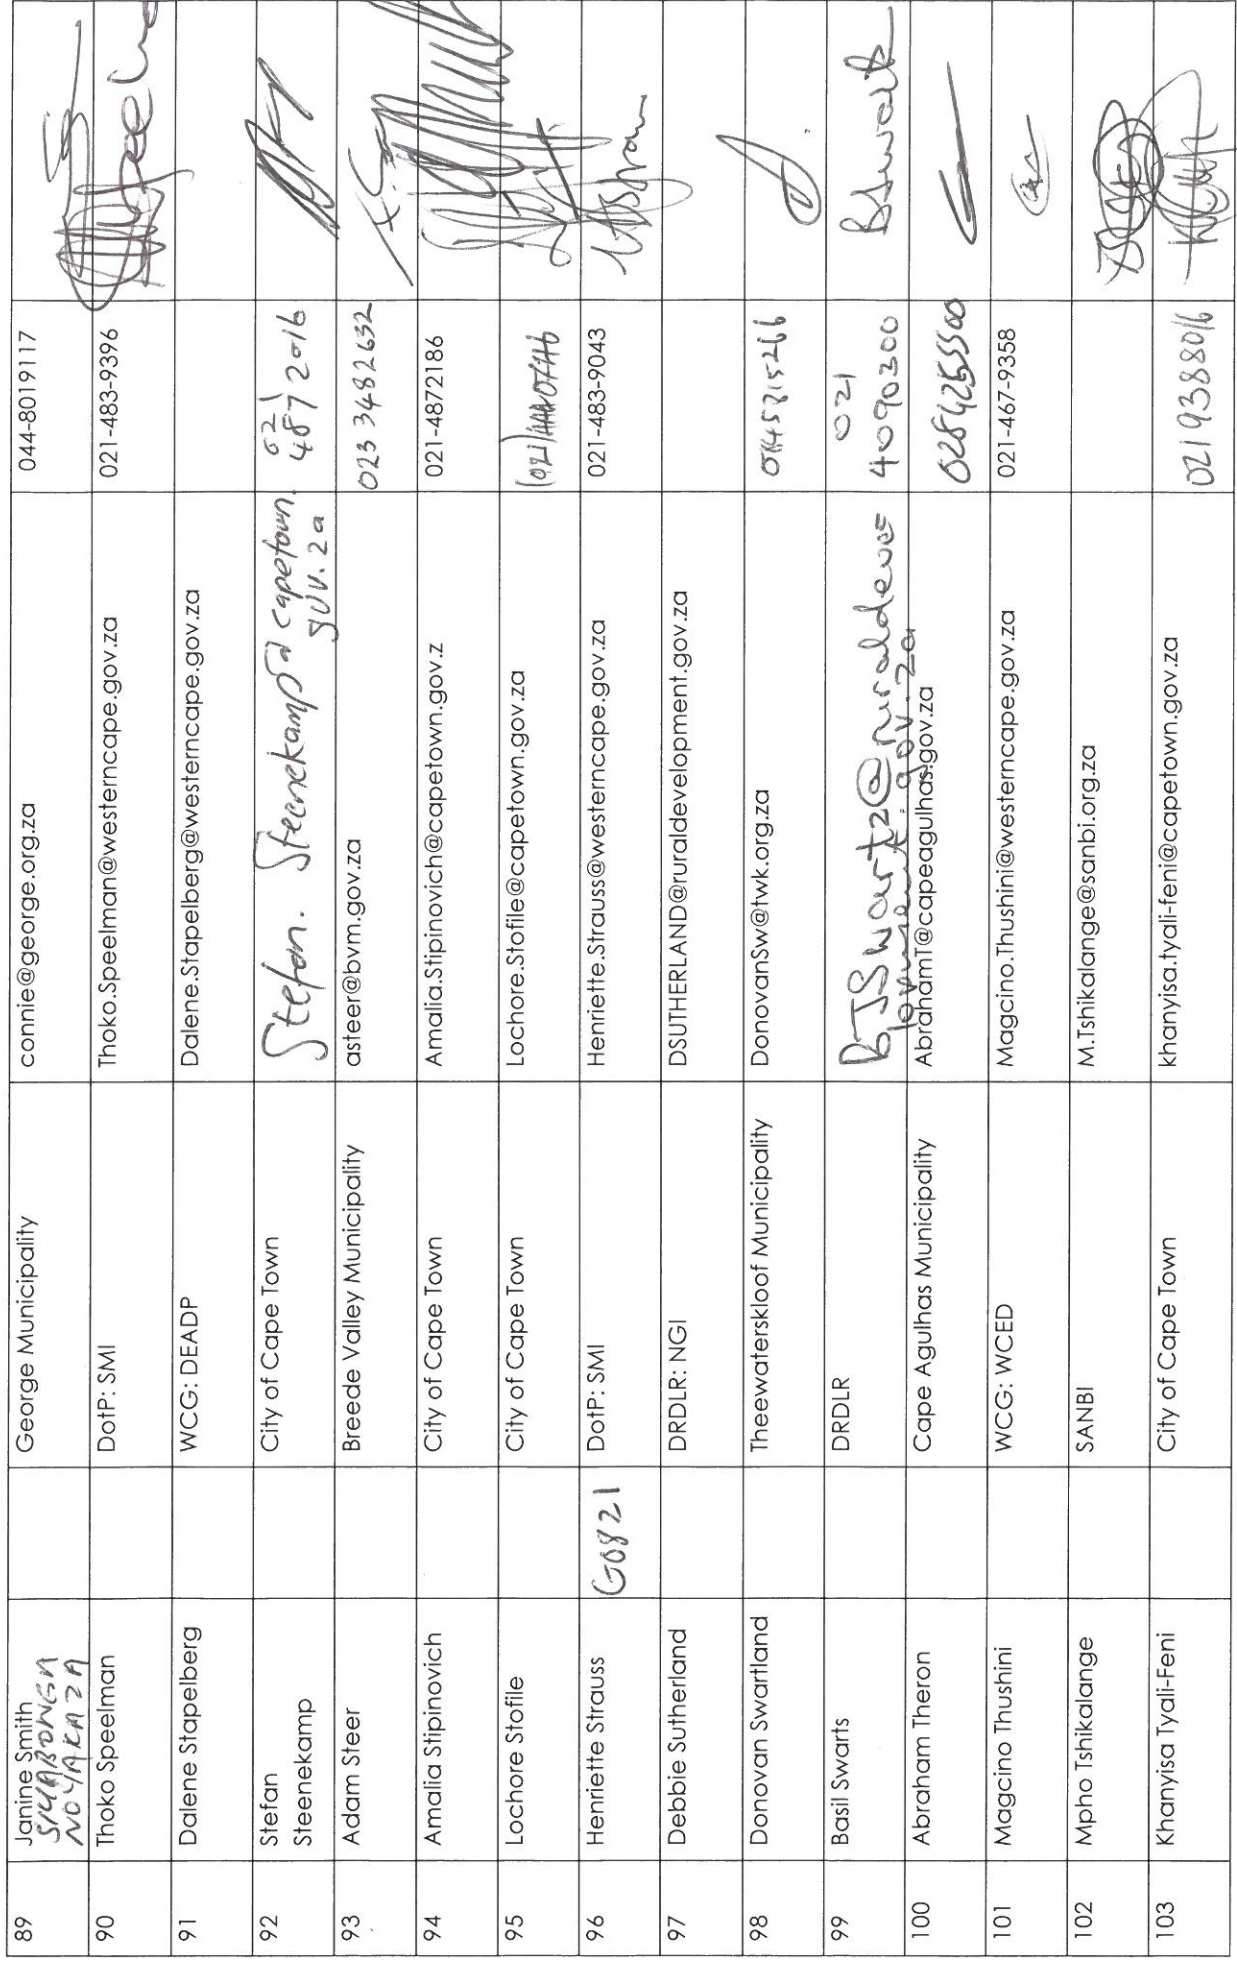 89 Janine Smith George Municipality connie@george.org.za 044-8019117
SIYABONGA
NOYAKAZA
90 Thoko Speelman DotP: SMI Thoko.Speelman@westerncape.gov.za 021-483-9396
91 Dalene Stapelberg WCG: DEADP Dalene.Stapelberg@westerncape.gov.za
92 Stefan City of Cape Town Stefan. Steenekamp@capetown. 021
Steenekamp gov.za 487 2016
93 Adam Steer Breede Valley Municipality asteer@bvm.gov.za 023 3482632
94 Amalia Stipinovich City of Cape Town Amalia.Stipinovich@capetown.gov.z 021-4872186
95 Lochore Stofile City of Cape Town Lochore.Stofile@capetown.gov.za
96 Henriette Strauss G0821 DotP: SMI Henriette.Strauss@westerncape.gov.za 021-483-9043
97 Debbie Sutherland DRDLR: NGI DSUTHERLAND@ruraldevelopment.gov.za
98 Donovan Swartland Theewaterskloof Municipality DonovanSw@twk.org.za
99 Basil Swarts DRDLR BTSwartz@ruraldeve 021
lopment.gov.za 4090300 BSwarts
100 Abraham Theron Cape Agulhas Municipality AbrahamT@capeagulhas.gov.za 0284255500
101 Magcino Thushini WCG: WCED Magcino.Thushini@westerncape.gov.za 021-467-9358
102 Mpho Tshikalange SANBI M.Tshikalange@sanbi.org.za
103 Khanyisa Tyali-Feni City of Cape Town khanyisa.tyali-feni@capetown.gov.za 0219388016